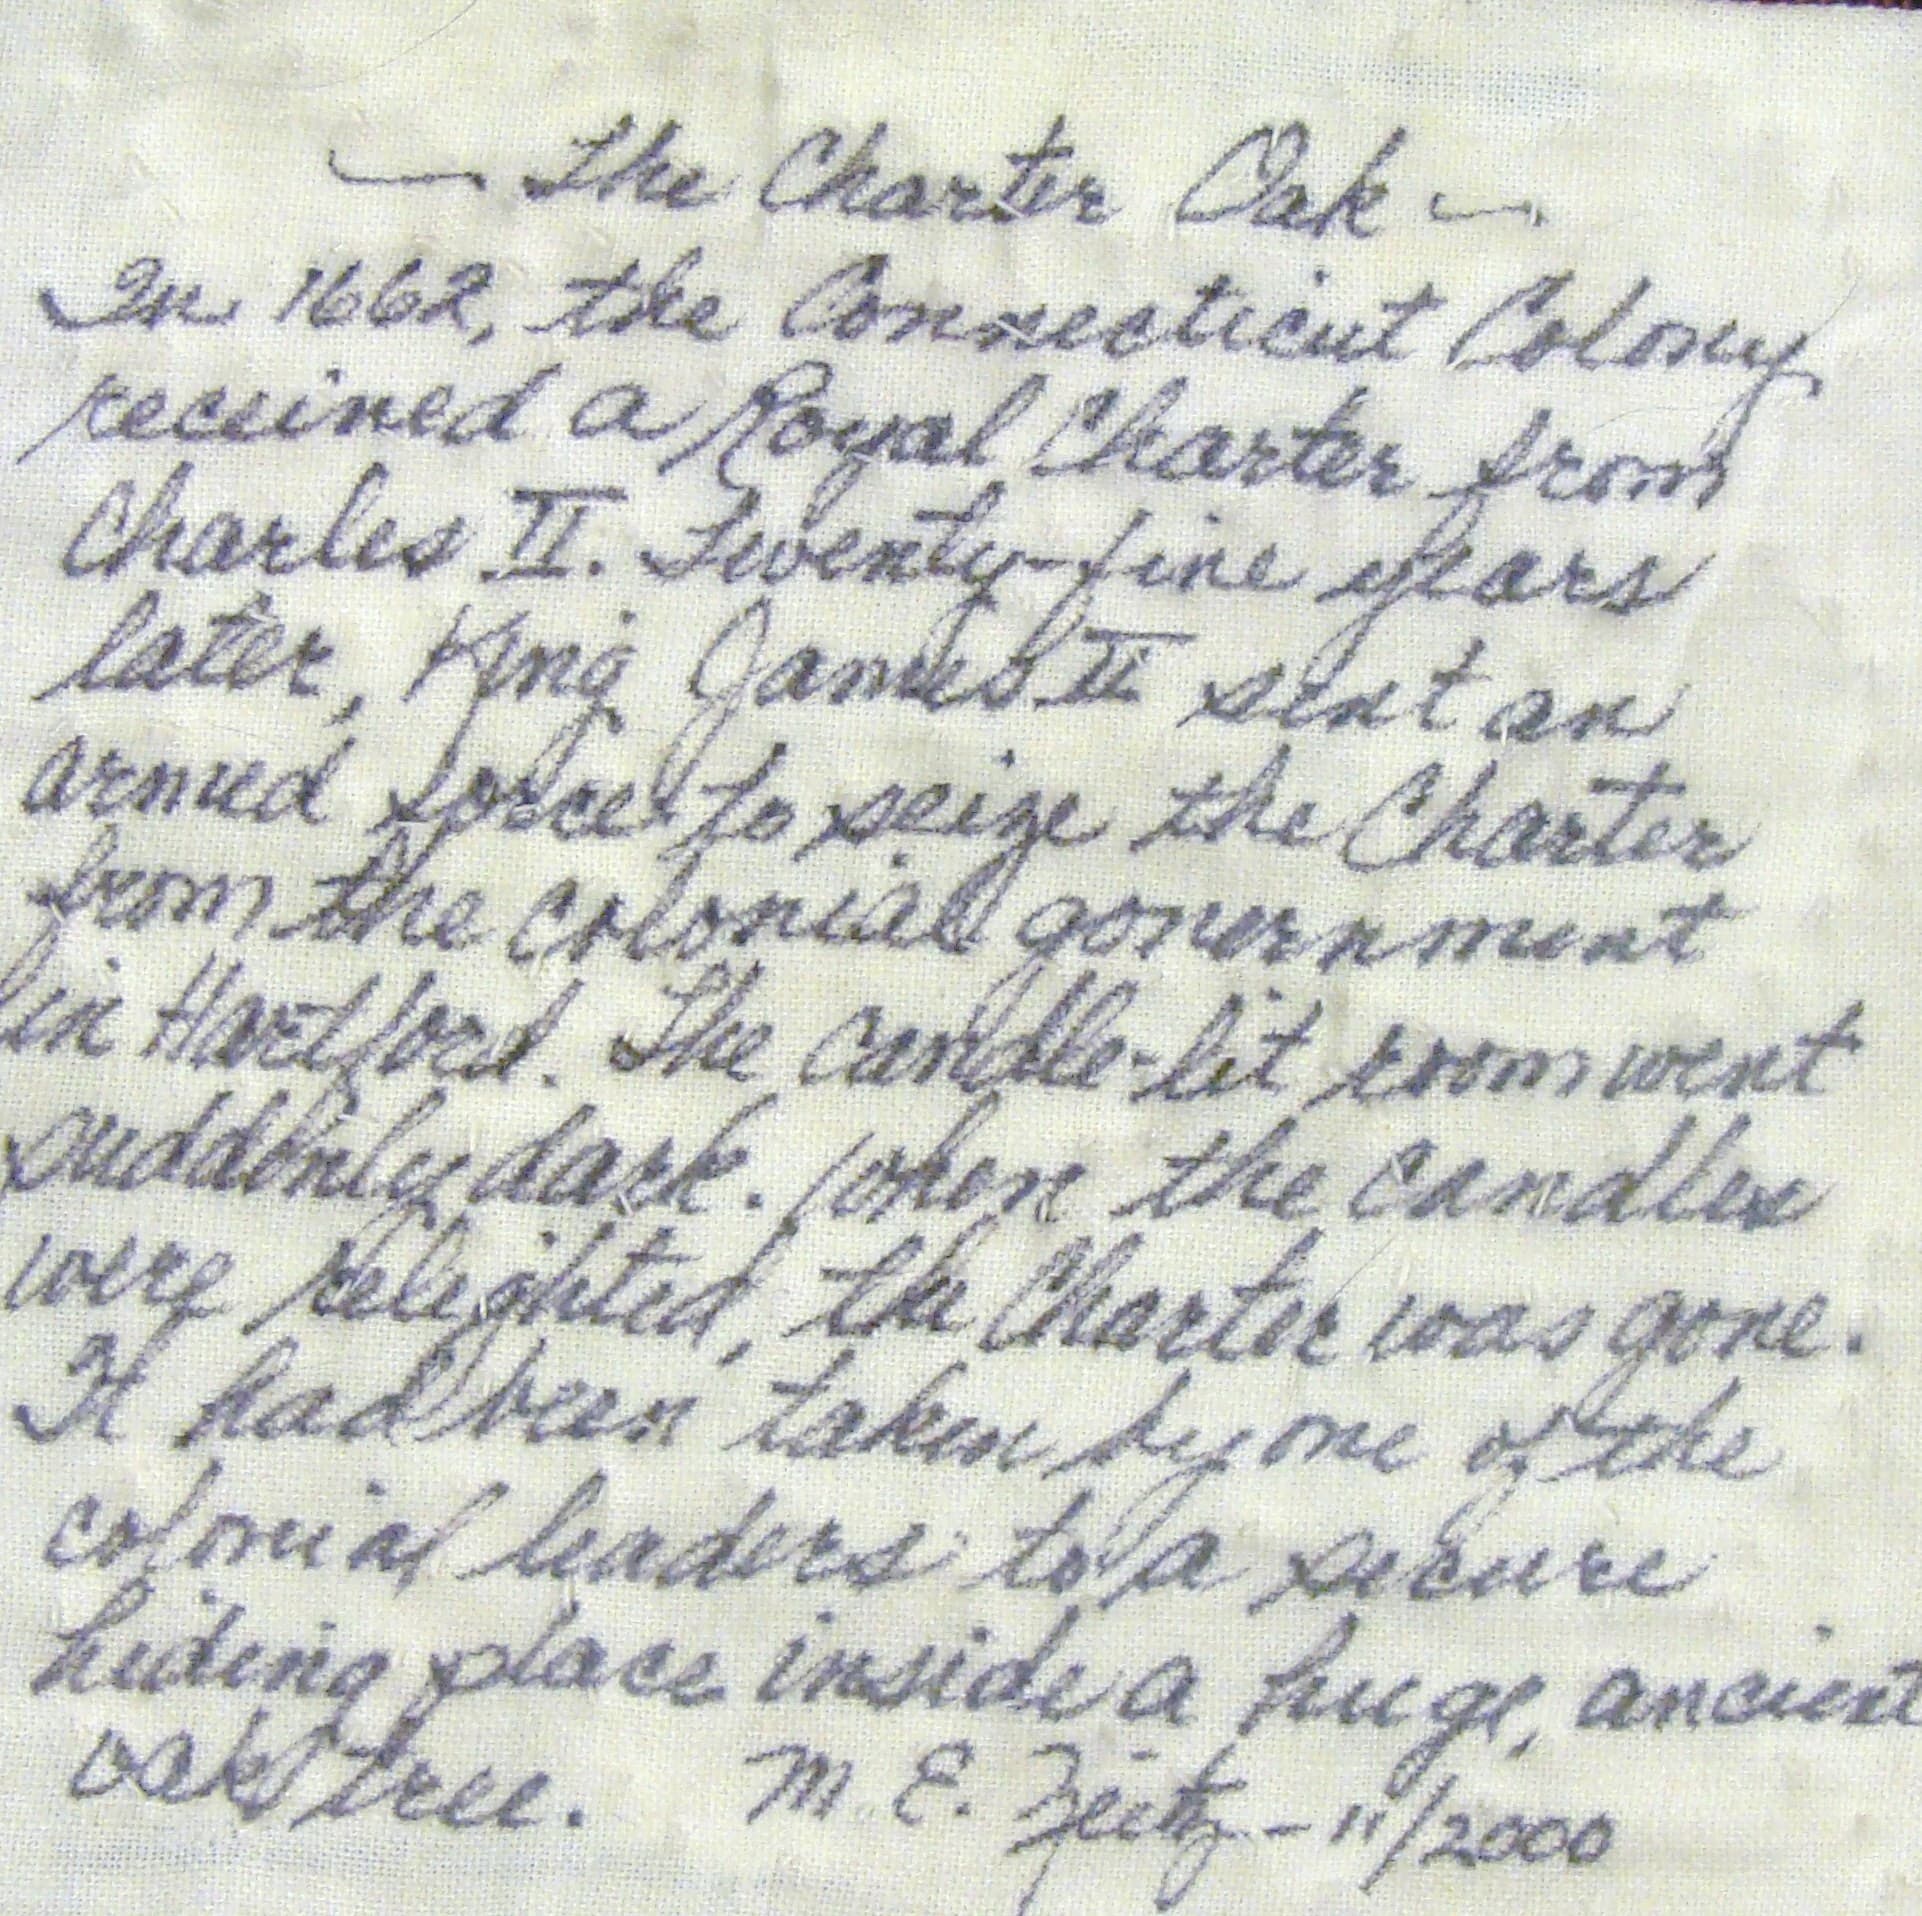 — The Charter Oak —
In 1662, the Connecticut Colony
received a Royal Charter from
Charles II. Twenty-five years
later, King James II sent an
armed force to seize the Charter
from the colonial government
in Hartford. The candle-lit room went
suddenly dark. When the candles
were relighted, the Charter was gone.
It had been taken by one of the
colonial leaders to a secure
hiding place inside a huge, ancient
oak tree. M. E. - 11/2000